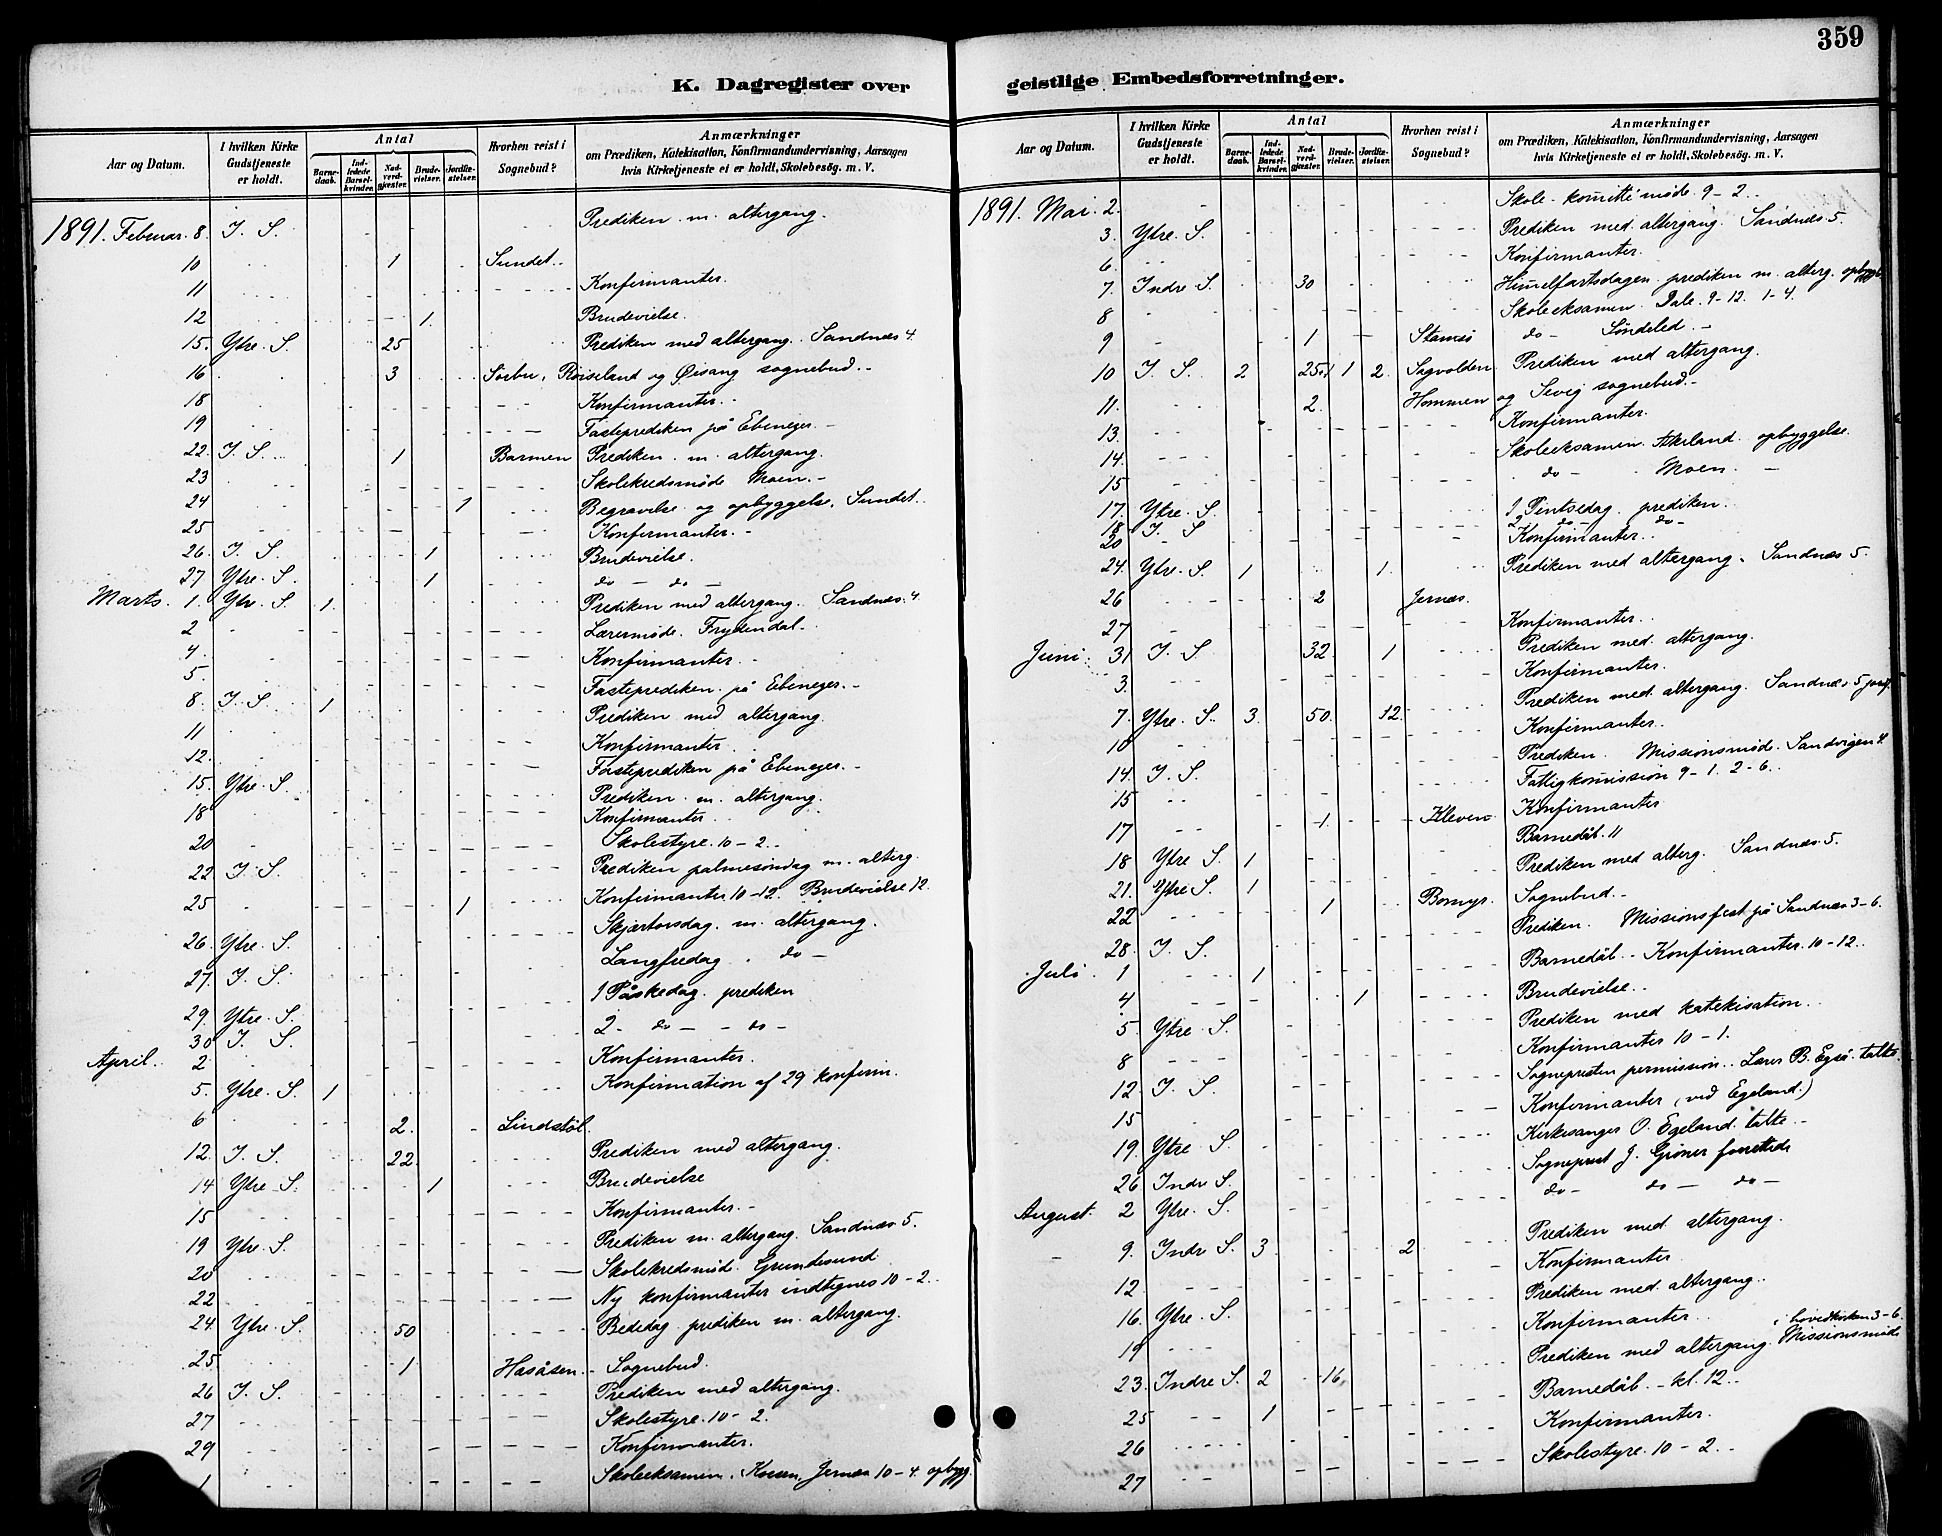 359
K. Dagregister over geistlige Embedsforretninger.
Aar og Datum.
I hvilken Kirke Gudstjeneste er holdt.
Antal
Barne-daab.
Ind-ledede Barsel-kvinder.
Nad-verd-gjester.
Brude-vielser.
Jordfæ-stelser.
Hvorhen reist i Sognebud?
Anmærkninger
om Prædiken, Katekisation, Konfirmandundervisning, Aarsagen
hvis Kirketjeneste ei er holdt, Skolebesög. m. V.
1891. Februar. 8. I. S. Prediken m. altergang.
10 1 Sundet.
11 Konfirmanter.
12 1 Brudevielse.
15. Ytre. S. 25 Prediken med altergang. Sandnæs 4.
16 3 Sørbu, Røiseland og Øisang sognebud.
18 Konfirmanter.
19 Fasteprediken på Ebenezer.
22. I. S. 1 Barmen Prediken m. altergang.
23 Skolekredsmøde Moen.
24 1 Begravelse og opbyggelse, Sundet.
25 Konfirmanter.
26. I. S. 1 Brudevielse.
27 Ytre. S. 1 do - do -
Marts. 1. Ytr. S. 1. Prediken med altergang. Sandnæs. 4.
2 Lærermøde. Frydendal.
4. Konfirmanter.
5. Fasteprediken på Ebenezer.
8. I. S. 1 Prediken med altergang.
11 Konfirmanter.
12. Fasteprediken på Ebenezer.
15. Ytre. S. Prediken m. altergang.
18 Konfirmanter.
20 Skolestyre. 10-2.
22 I. S. Prediken palmesøndag m. alterg.
25 1 Konfirmanter 10-12. Brudevielse 12.
26. Ytre. S. Skjærtorsdag. m. altergang.
27. I. S. Langfredag. do -
29. Ytre. S. 1 Påskedag. prediken
30 I. S. 2. do - - do -
April. 2 Konfirmanter.
5. Ytre. S. 1 Konfirmation af 29 konfirm.
6 2. Lindstøl.
12. I. S. 22 Prediken med altergang.
14 Ytre S. 1 Brudevielse
15 Konfirmanter.
19 Ytre. S. Prediken m. altergang. Sandnæs. 5.
20 Skolekredsmøde. Grundesund
22 Ny konfirmanter indtegnes 10-2.
24. Ytre. S. 50 Bededag. prediken m. altergang.
25 1 Hasåsen. Sognebud.
26 I. S. Prediken med altergang.
27 Skolestyre. 10-2.
29 Konfirmanter.
1 Skoleeksamen. Jernæs 10-4. opbygg.
Aar og Datum.
I hvilken Kirke Gudstjeneste er holdt.
Antal
Barne-daab.
Ind-ledede Barsel-kvinder.
Nad-verd-gjester.
Brude-vielser.
Jordfæ-stelser.
Hvorhen reist i Sognebud?
Anmærkninger
om Prædiken, Katekisation, Konfirmandundervisning, Aarsagen
hvis Kirketjeneste ei er holdt, Skolebesög. m. V.
1891. Mai. 2. Skole-komitté møde. 9-2.
3. Ytre. S. Prediken med altergang. Sandnæs. 5.
6. Konfirmanter.
7. Indre S. 30 Himmelfartsdagen prediken m. alterg. opbygg.
8 Skoleeksamen Dale. 9-12. 1-4.
9 1 Stamsø do - Søndeled.
10 I. S. 2 25 1 1 2. Sagvolden Prediken med altergang.
11. 2. Hommen og Sevig sognebud.
13. Konfirmanter.
14. Skoleeksamen. Akeland. opbyggelse.
15 do - Moen. -
17. Ytre. S. 1 Pintsedag. prediken.
18 I. S 2 do - do -
20 Konfirmanter.
24. Ytre. S. 1 1. Prediken med altergang. Sandnæs 5.
26 2 Jernæs.
27 Konfirmanter.
Juni. 31 I. S 32. 1 Prediken med altergang.
3. Konfirmanter.
7. Ytre. S. 3. 50. 12. Prediken med altergang. Sandnæs 5
10 Konfirmanter.
14. I. S. Prediken. Missionsmøde. Sandvigen 4.
15 Fattigkommission 9-1. 2-6.
17 1. Kleven Konfirmanter
18 Ytre S. 1 Barnedåb. 11
21. Ytre S. 1 Prediken med alterg. Sandnæs. 5.
22 1 Bomyr. Sognebud.
28. I. S. Prediken. Missionsfest på Sandnæs 3-6.
Juli. 1 1 Barnedåb. - Konfirmanter. 10-12.
4 1 Brudevielse.
5. Ytre. S. Prediken med katekisation.
8 Konfirmanter 10-1.
12. I. S. Sognepresten permission. Lærer B. talte.
15 Konfirmanter (ved Egeland.)
19. Ytre S. Kirkesanger O. Egeland talte.
26 Indre S. Sogneprest J. forettede
August. 2 Ytre. S. do - do - do -
9. Indre S. 3 2 Prediken med altergang.
12 Konfirmanter
16. Ytre. S. Prediken med altergang.
19 Konfirmanter
23. Indre S. 2 16 Prediken med altergang. Missionsmøde i hovedkirken 3-6.
25 1 Barnedåb. - kl. 12.
26 Konfirmanter.
27 Skolestyre. 10-2.